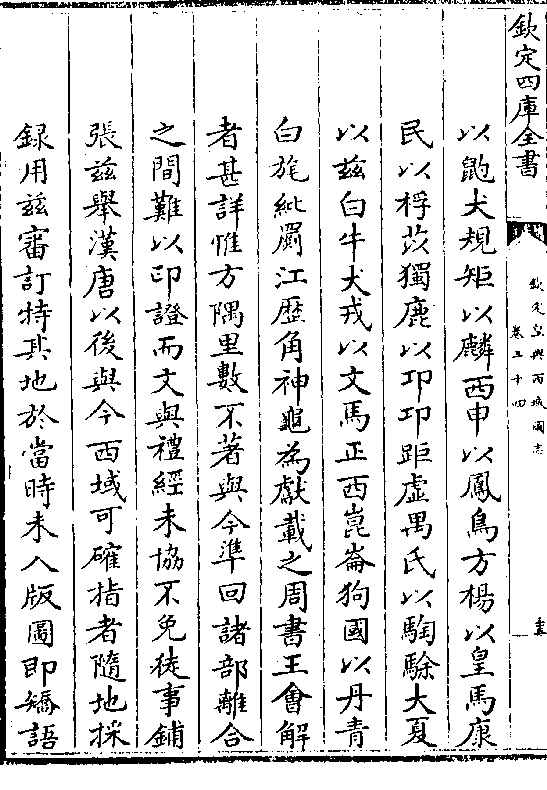 欽定四庫全書
欽定皇輿西域圖志
卷三十四
以鼩犬規矩以麟西申以鳳鳥方楊以皇馬康
民以桴苡獨鹿以卭卭距虛禺氏以騊駼大夏
以兹白牛犬戎以文馬正西崑崙狗國以丹青
白旄紕罽江歴角神龜為獻載之周書王會解
者甚詳惟方隅里數不著與今準回諸部離合
之間難以印證而文與禮經未協不免徒事鋪
張兹舉漢唐以後與今西域可確指者隨地採
録用兹審訂特其地於當時未入版圖即矯語